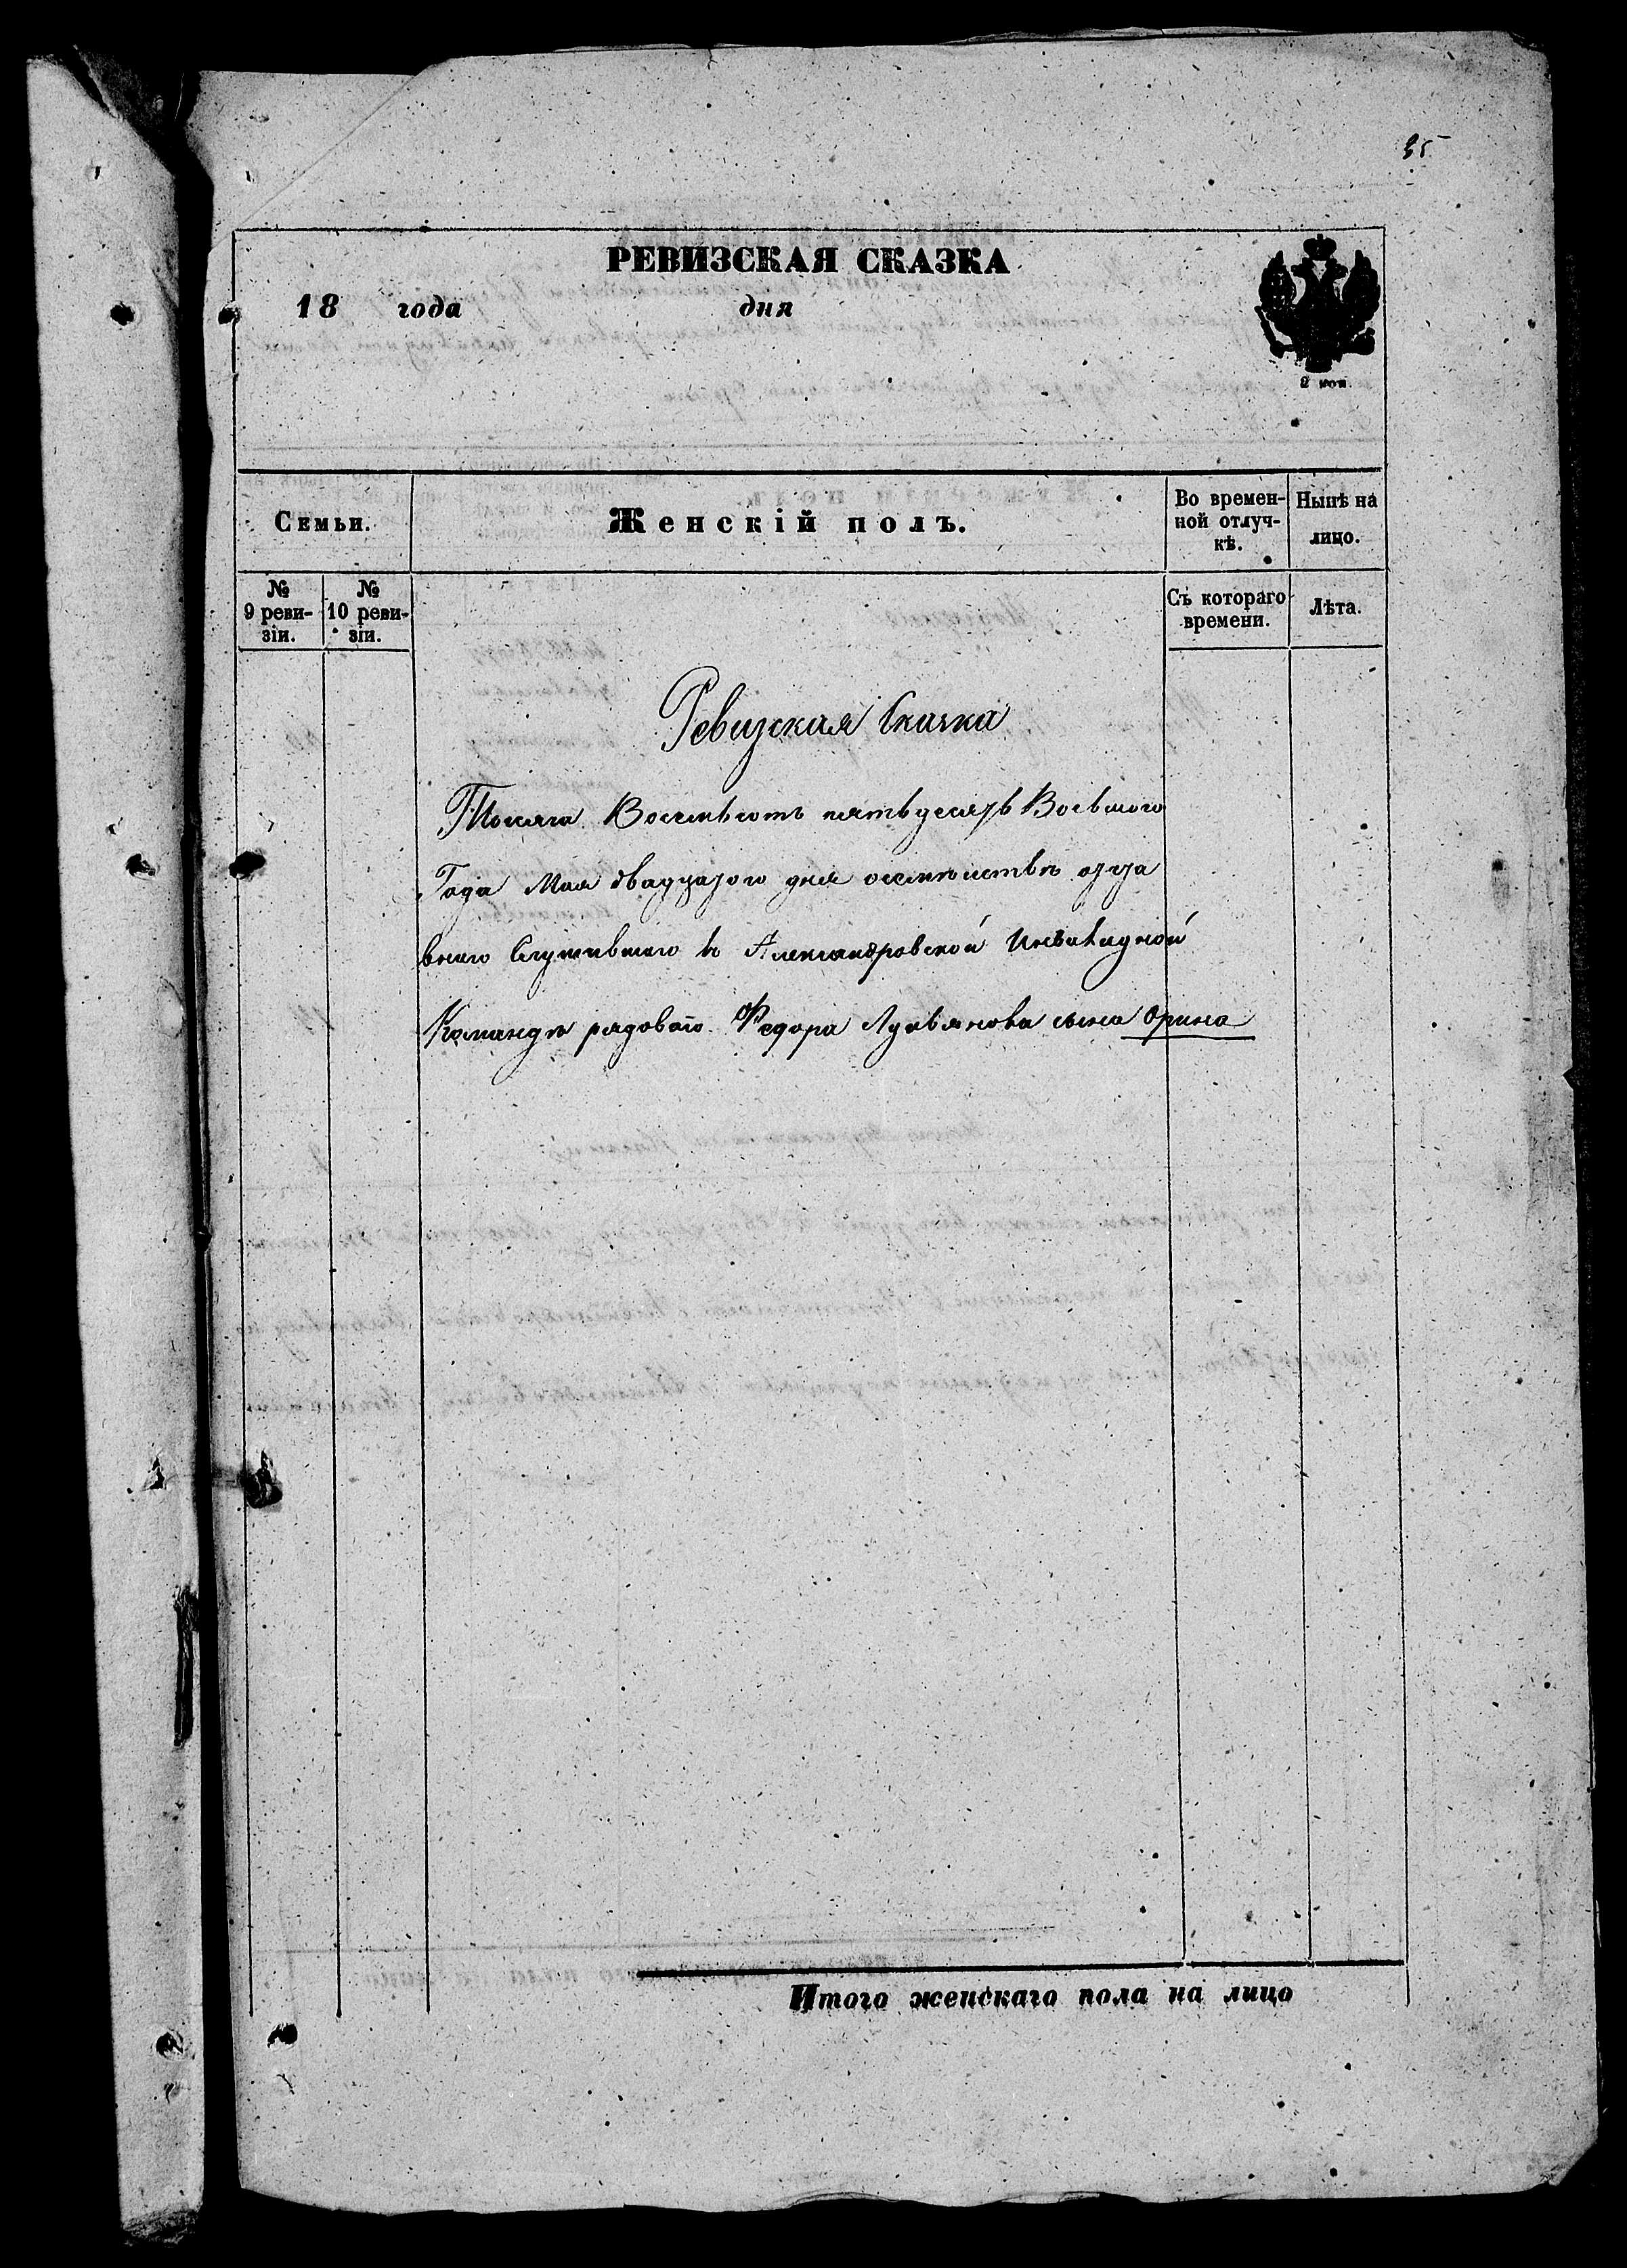 35
РЕВИЗСКАЯ СКАЗКА
18 года дня
2 коп.
Семьи.
Женскій полъ.
Во времен-
ной отлуч-
кѣ.
Нынѣ на
лицо.
№
9 реви-
зіи.
№
10 реви-
зіи.
Съ котораго
времени.
Лѣта.
Ревизкая Скачка
Восемьсотъ пятьдесятъ
Года Мая двадцатого дня о семѣйствѣ отца
Служившаго в Александровской Инвалидной
Командѣ рядоваго Федора Лукьянова сына Орина
Итого женскаго пола на лицо